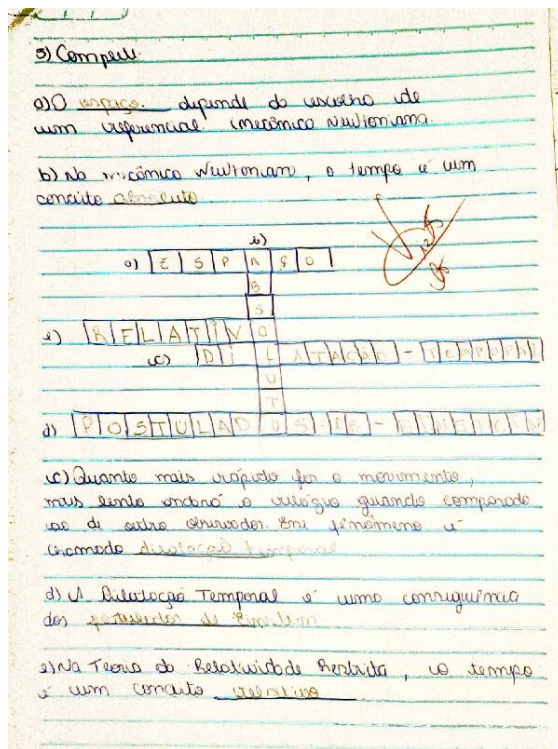 5) Complete
a) O espaço depende do escolha de
um referencial (mecânica Newtoniana.
b) Na mecânica Newtonian, o tempo é um
conceito absoluto
b)
a) ESPAÇO
B
S
e) RELATIVO
c) DILATAÇAO-TEMPORAL
U
T
d) POSTULADOS-DE-EINSTEIN
c) Quanto mais rápido for o movimento,
mais lento andará o relógio quando comparado
ao de outro observador. Esse fenômeno é
chamado dilatação temporal
d) A Dilatação Temporal é uma consequência
dos postulados de Einstein
e) Na Teoria da Relatividade Restrita, o tempo
é um conceito relativo